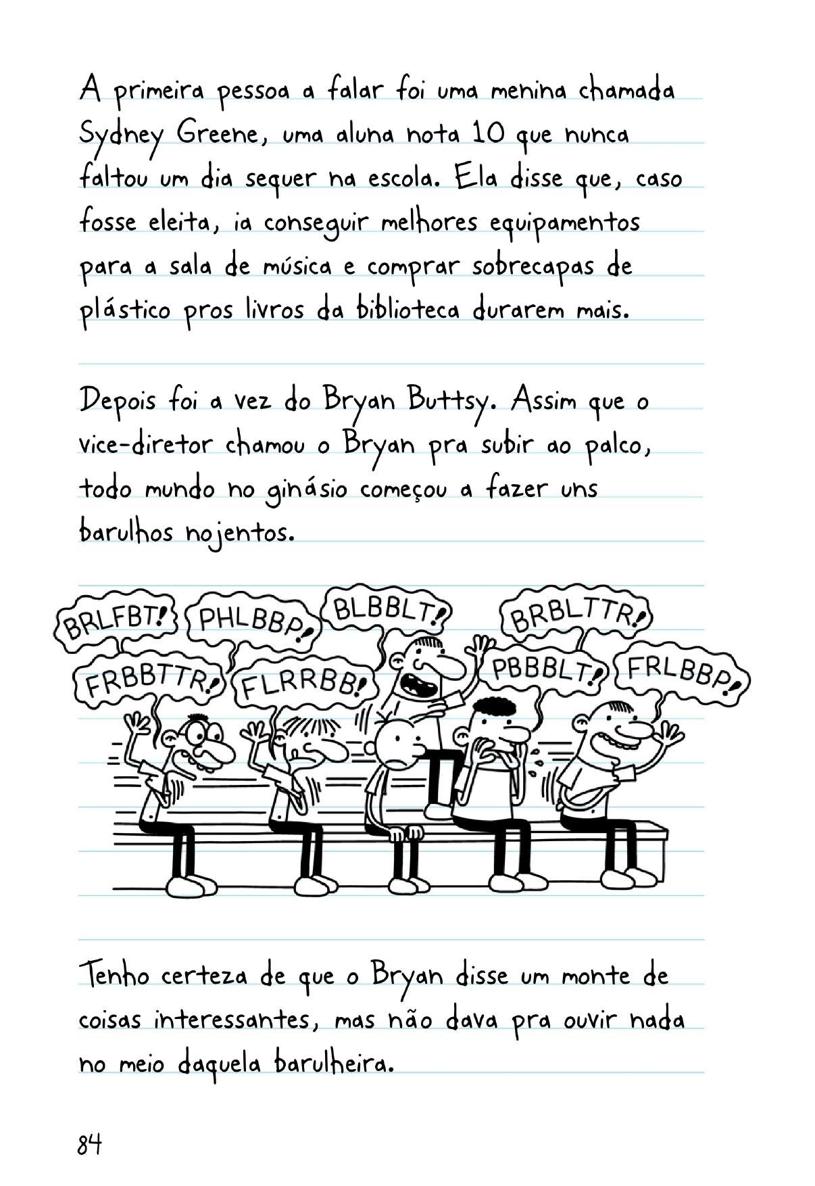 A primeira pessoa a falar foi uma menina chamada
Sydney Greene, uma aluna nota 10 que nunca
faltou um dia sequer na escola. Ela disse que, caso
fosse eleita, ia conseguir melhores equipamentos
para a sala de música e comprar sobrecapas de
plástico pros livros da biblioteca durarem mais.
Depois foi a vez do Bryan Buttsy. Assim que o
vice-diretor chamou o Bryan pra subir ao palco,
todo mundo no ginásio começou a fazer uns
barulhos nojentos.
BRLFBT!
PHLBBP!
BLBBLT!
BRBLTTR!
FRBBTTR!
FLRRBB!
PBBBLT!
FRLBBP!
Tenho certeza de que o Bryan disse um monte de
coisas interessantes, mas não dava pra ouvir nada
no meio daquela barulheira.
84